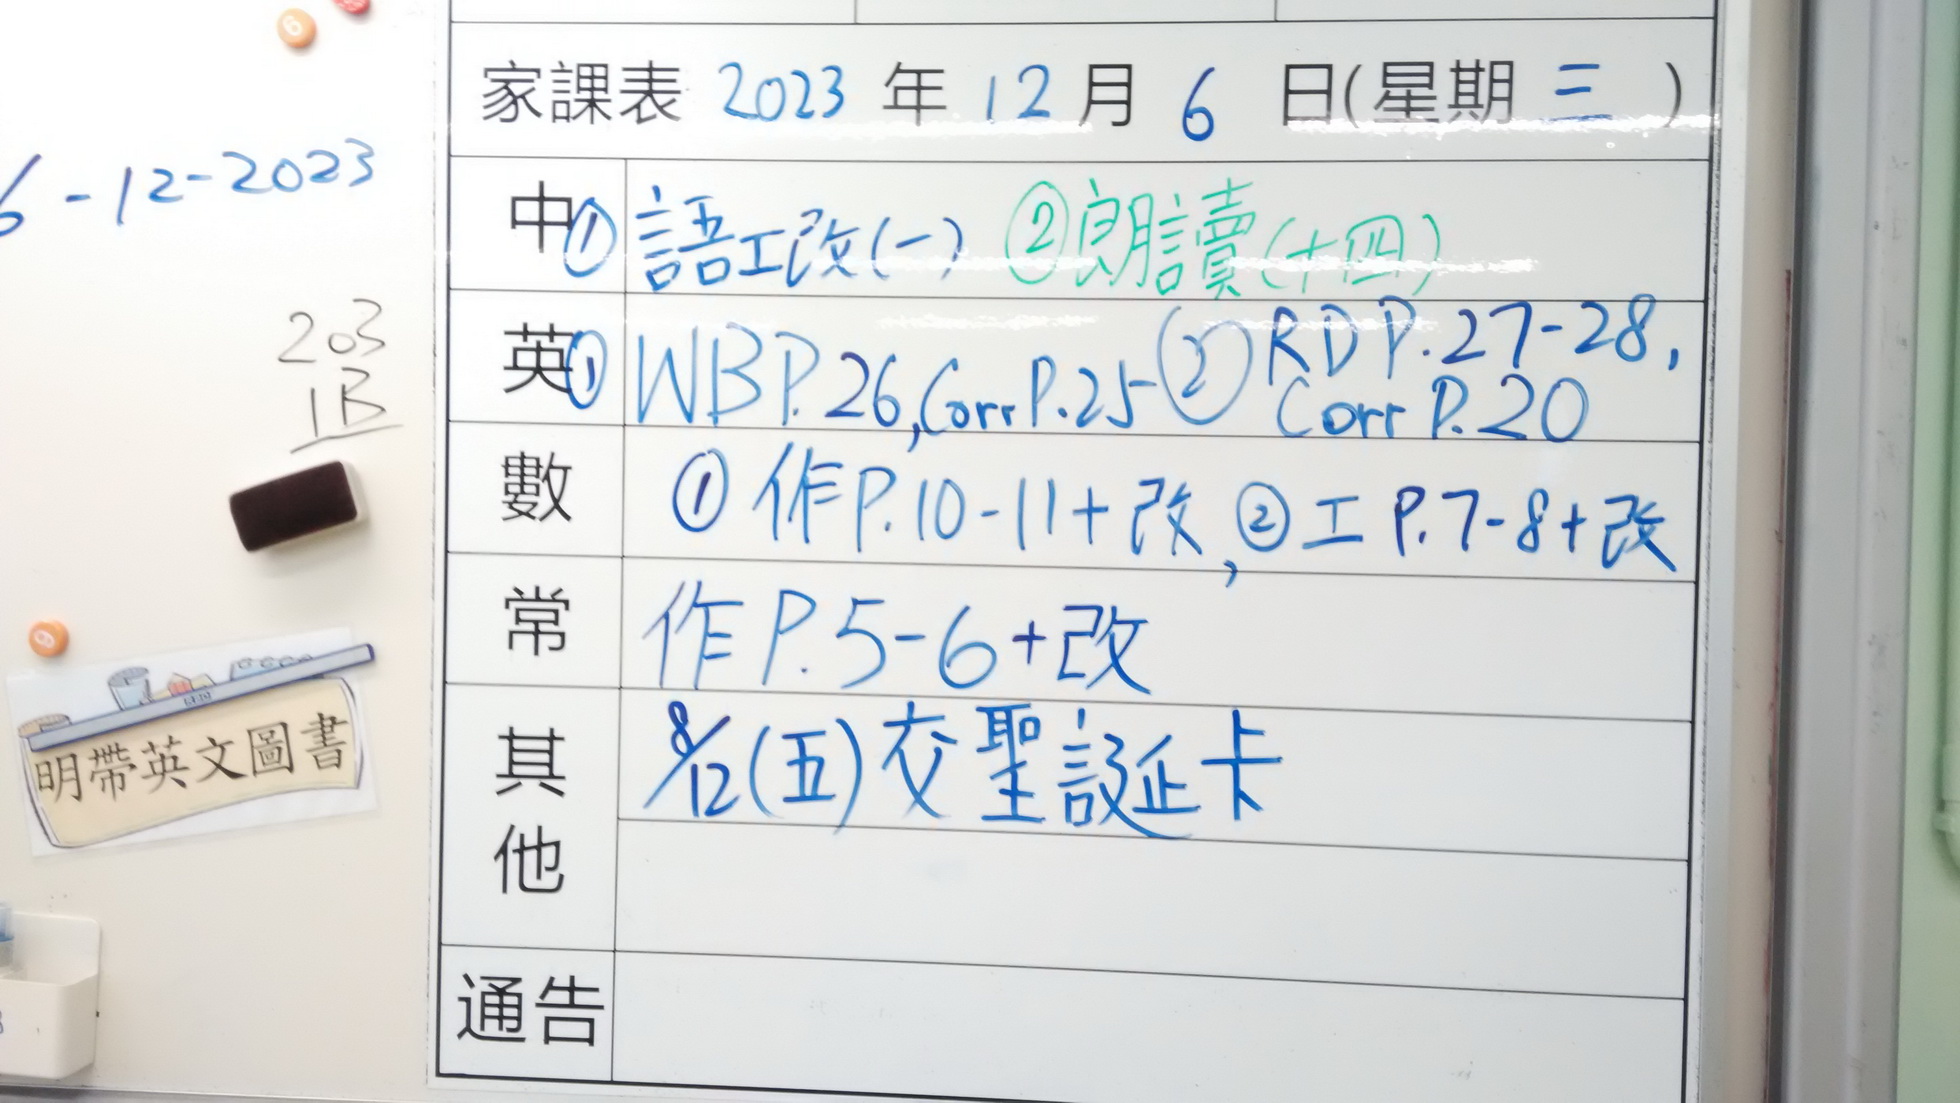 家課表 2023 年 12 月 6 日(星期 三 )
6-12-2023
中 ① 語工改(一) ② 朗讀(十四)
203
1B
英 ① WB P.26, Corr P.25 ② RD P.27-28,
Corr P.20
數 ① 作 P.10-11+改, ② 工 P.7-8+改
常 作 P.5-6+改
其他 8/12(五)交聖誕卡
明帶英文圖書
通告